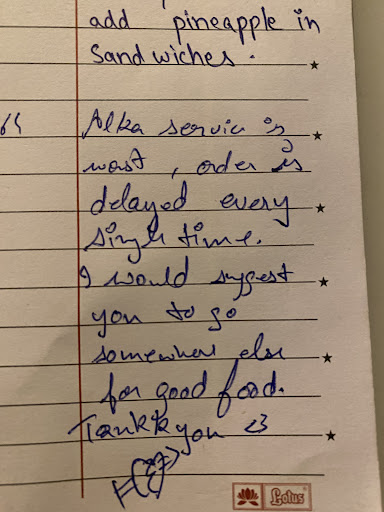 add pineapple in
Sandwiches.
Alka servic is
worst, order is
delayed every
single time.
I would suggest
you to go
somewhere else
for good food.
Tankk you <3
Lotus